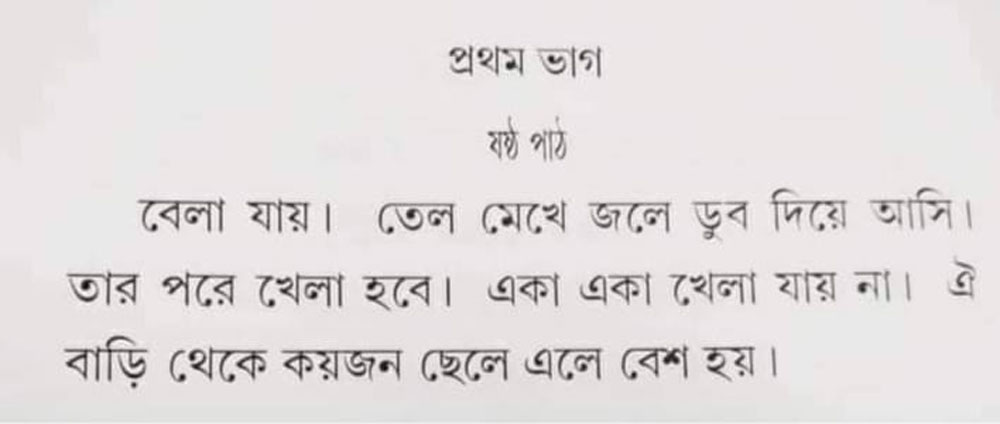 প্রথম ভাগ
ষষ্ঠ পাঠ
বেলা যায়। তেল মেখে জলে ডুব দিয়ে আসি।
তার পরে খেলা হবে। একা একা খেলা যায় না। ঐ
বাড়ি থেকে কয়জন ছেলে এলে বেশ হয়।